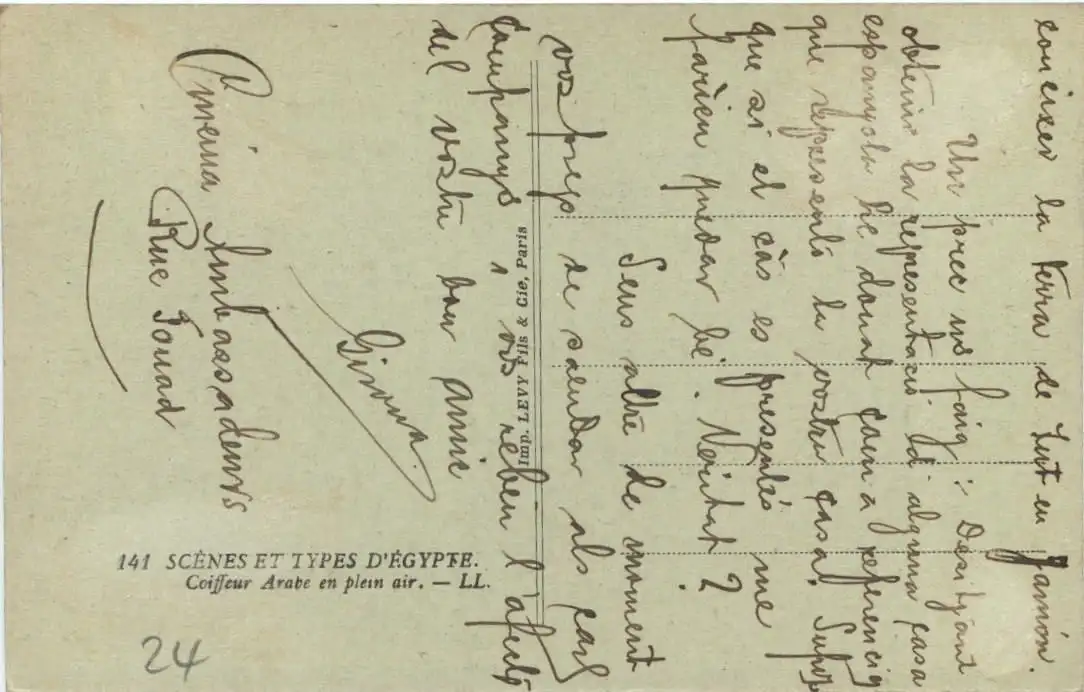 coneixer la terra de Tut-en-Jamón.
Un prec us faig: Desitjant
obtenir la representació d'alguna casa
espanyola he donat com a referencia
que represento la vostra casa. Supo
que si el càs es presentés me
farieu quedar bé. Veritat?
Sens altre de moment
vos prega de saludar als car
companys i vos rebeu l'afecte
del vostre bon amic
Girona.
Cinéma Ambassadeurs
Rue Fouad
Imp. LEVY Fils & Cie, Paris
141 SCÈNES ET TYPES D'ÉGYPTE.
Coiffeur Arabe en plein air. — LL.
24